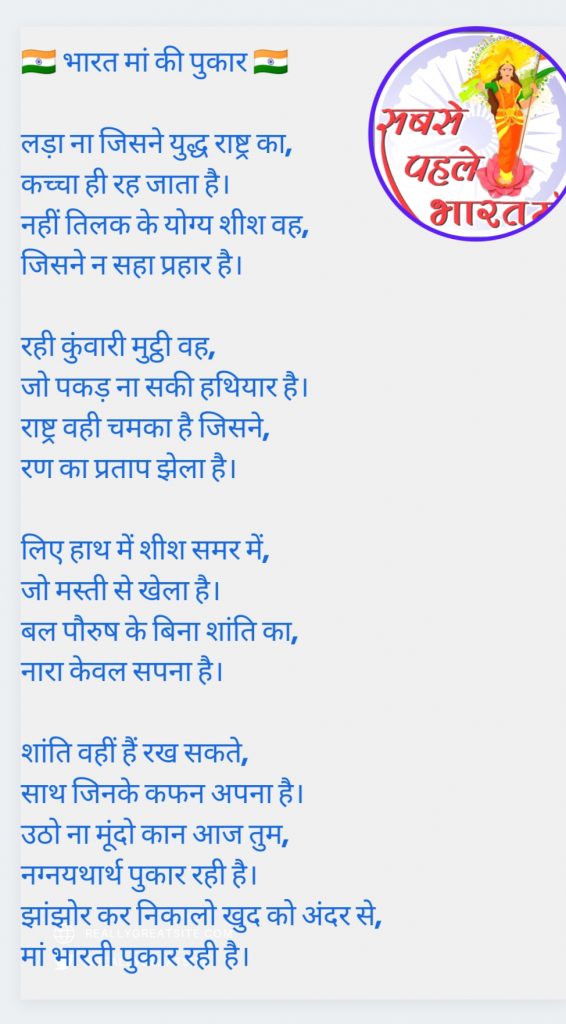 🇮🇳 भारत मां की पुकार 🇮🇳
सबसे
पहले
भारत
लड़ा ना जिसने युद्ध राष्ट्र का,
कच्चा ही रह जाता है।
नहीं तिलक के योग्य शीश वह,
जिसने न सहा प्रहार है।
रही कुंवारी मुट्ठी वह,
जो पकड़ ना सकी हथियार है।
राष्ट्र वही चमका है जिसने,
रण का प्रताप झेला है।
लिए हाथ में शीश समर में,
जो मस्ती से खेला है।
बल पौरुष के बिना शांति का,
नारा केवल सपना है।
शांति वहीं हैं रख सकते,
साथ जिनके कफन अपना है।
उठो ना मूंदो कान आज तुम,
नग्नयथार्थ पुकार रही है।
झांझोर कर निकालो खुद को अंदर से,
REALLYGREATSITE.COM
मां भारती पुकार रही है।